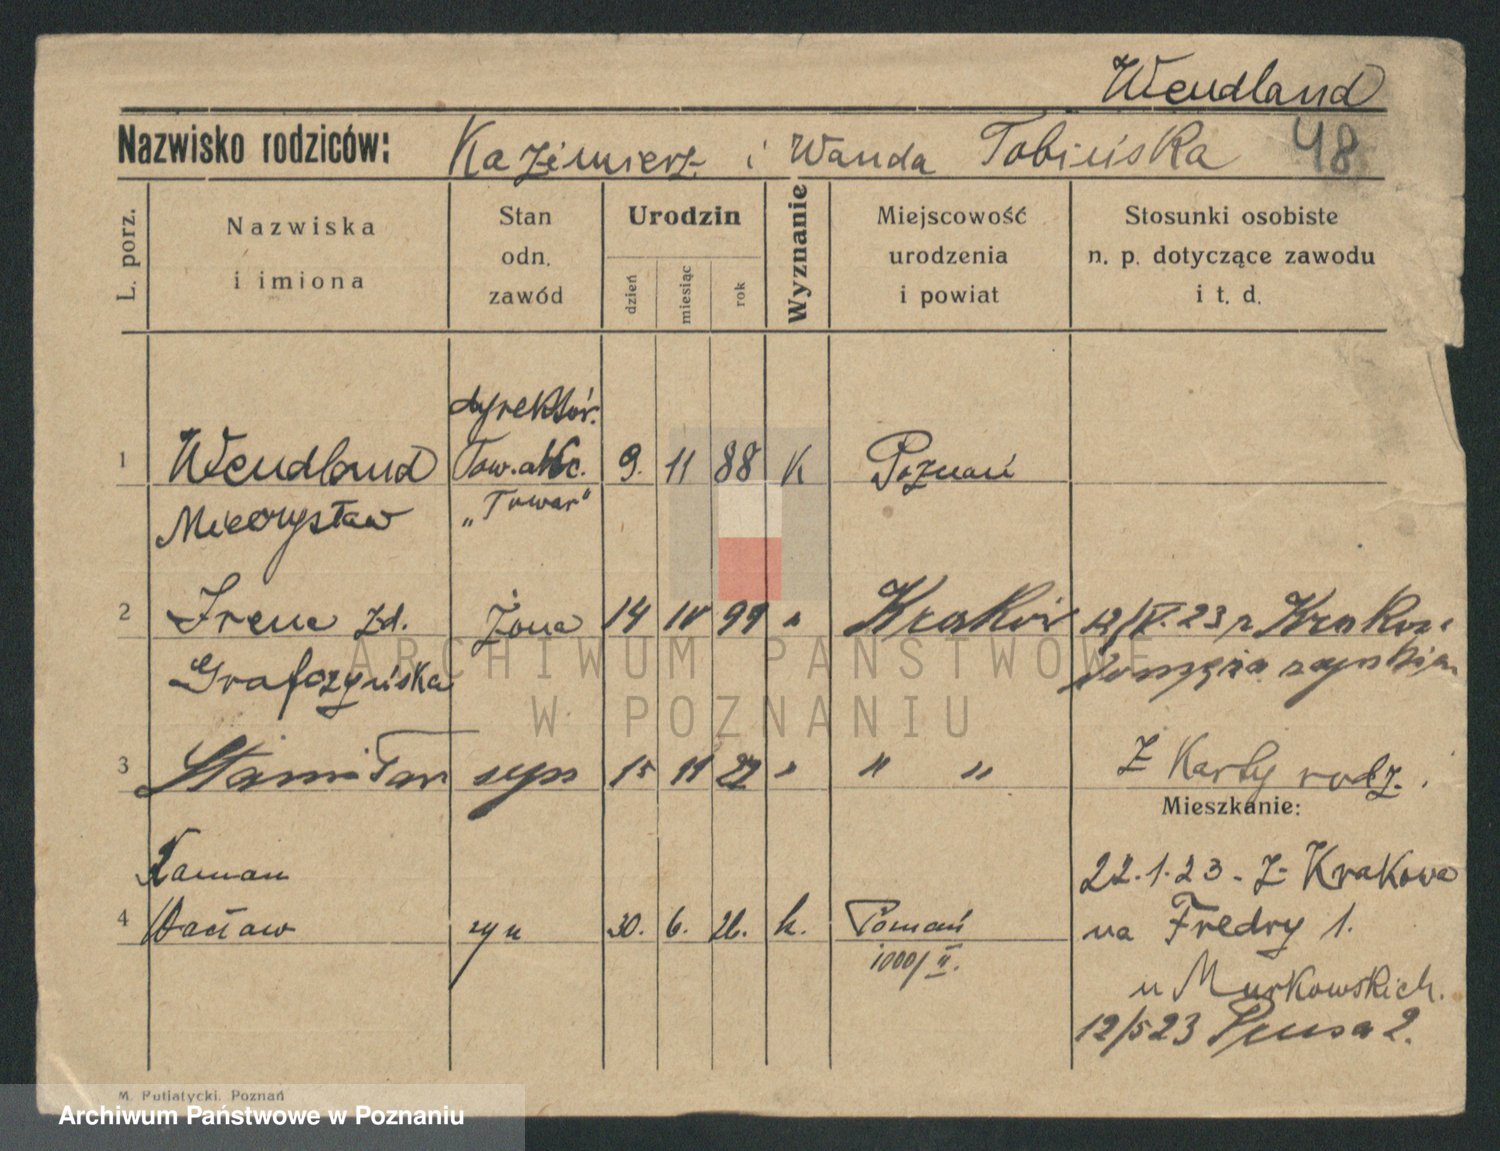 Wendland
Nazwisko rodziców: Kazimierz i Wanda Tobińska 48
L. porz.
Nazwiska i imiona
Stan odn. zawód
Urodzin
dzień miesiąc rok
Wyznanie
Miejscowość urodzenia i powiat
Stosunki osobiste n. p. dotyczące zawodu i t. d.
dyrektór.
1 Wendland Tow. akc. 9. 11 88 K Poznań
Mieczysław „Towar"
2 Irena zd. żona 14 IV 99 " Kraków 12/V.23 z Krakowa
Grafczyńska
3 Stanisław syn 15 11 22 " " " Z Karty rodz.
Mieszkanie:
Roman 22.1.23 - z Krakowa
4 Wacław syn 30. 6. 26. k. Poznań na Fredry 1.
1000/II. u Murkowskich.
12/5 23 Prusa 2.
M. Putiatycki. Poznań
ARCHIWUM PAŃSTWOWE
W POZNANIU
Archiwum Państwowe w Poznaniu